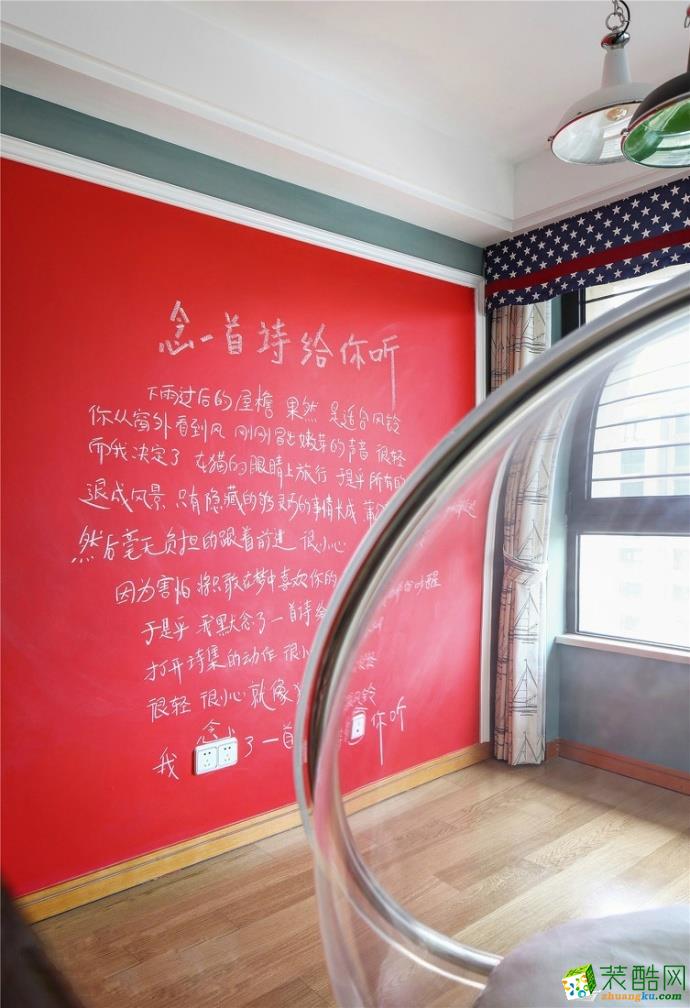 念一首诗给你听
下雨过后的屋檐 果然 是适合风铃
你从窗外看到风 刚刚冒出嫩芽的声音 很轻
而我决定了 在猫的眼睛上旅行 于是乎所有的
退成风景 只有隐藏的够灵巧的事情长成 蒲
然后毫无负担的跟着前进 很小心
因为害怕 将只敢在梦中喜欢你的 吵醒
于是乎 我默念了一首诗给
打开诗集的动作 很
很轻 很小心 就像 风铃
我 念 了一首 你听
装酷网
zhuangku.com